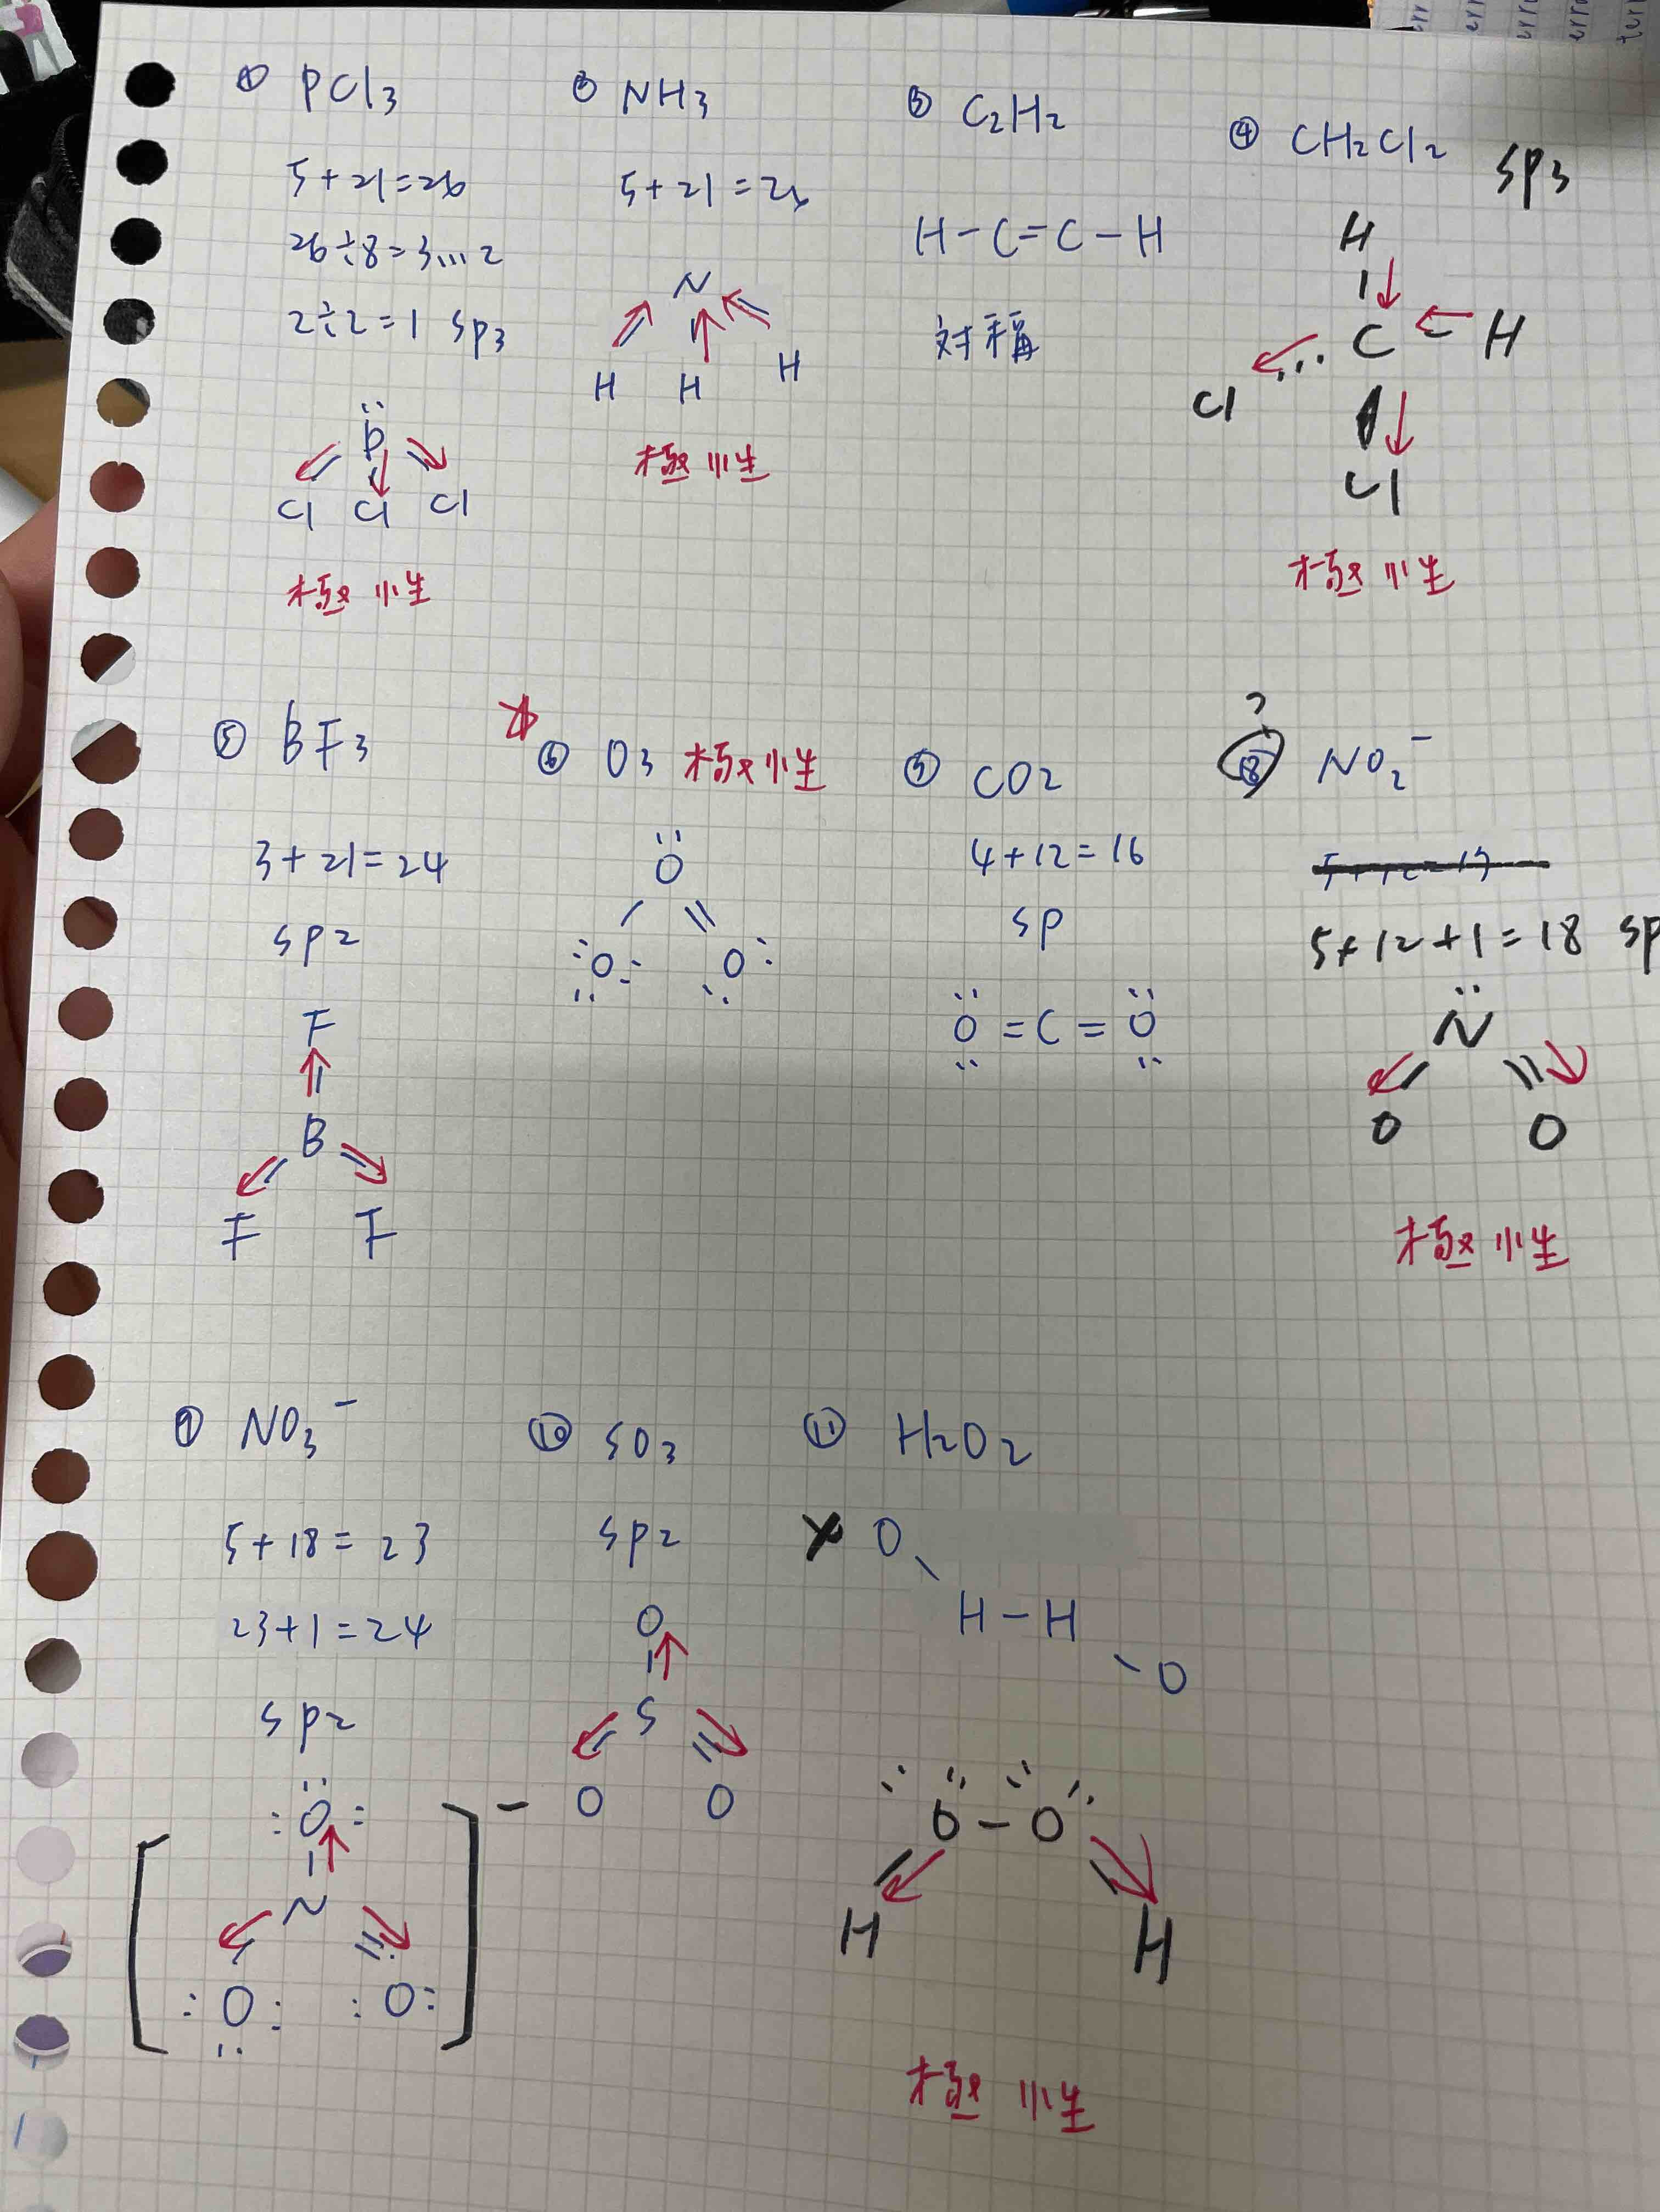 ① PCl3
5+21=26
26÷8=3…2
2÷2=1 sp3
P
Cl Cl Cl
極性
② NH3
5+21=26
N
H H H
極性
③ C2H2
H-C=C-H
对稱
④ CH2Cl2 sp3
H
C H
Cl
Cl
極性
⑤ BF3
3+21=24
sp2
F
B
F F
⑥ O3 極性
O
O O
⑦ CO2
4+12=16
sp
O=C=O
?
⑧ NO2-
5+12+1=18 sp
N
O O
極性
⑨ NO3-
5+18=23
23+1=24
sp2
O
N
O O
-
⑩ SO3
sp2
O
S
O O
⑪ H2O2
O
H-H
O
O-O
H H
極性